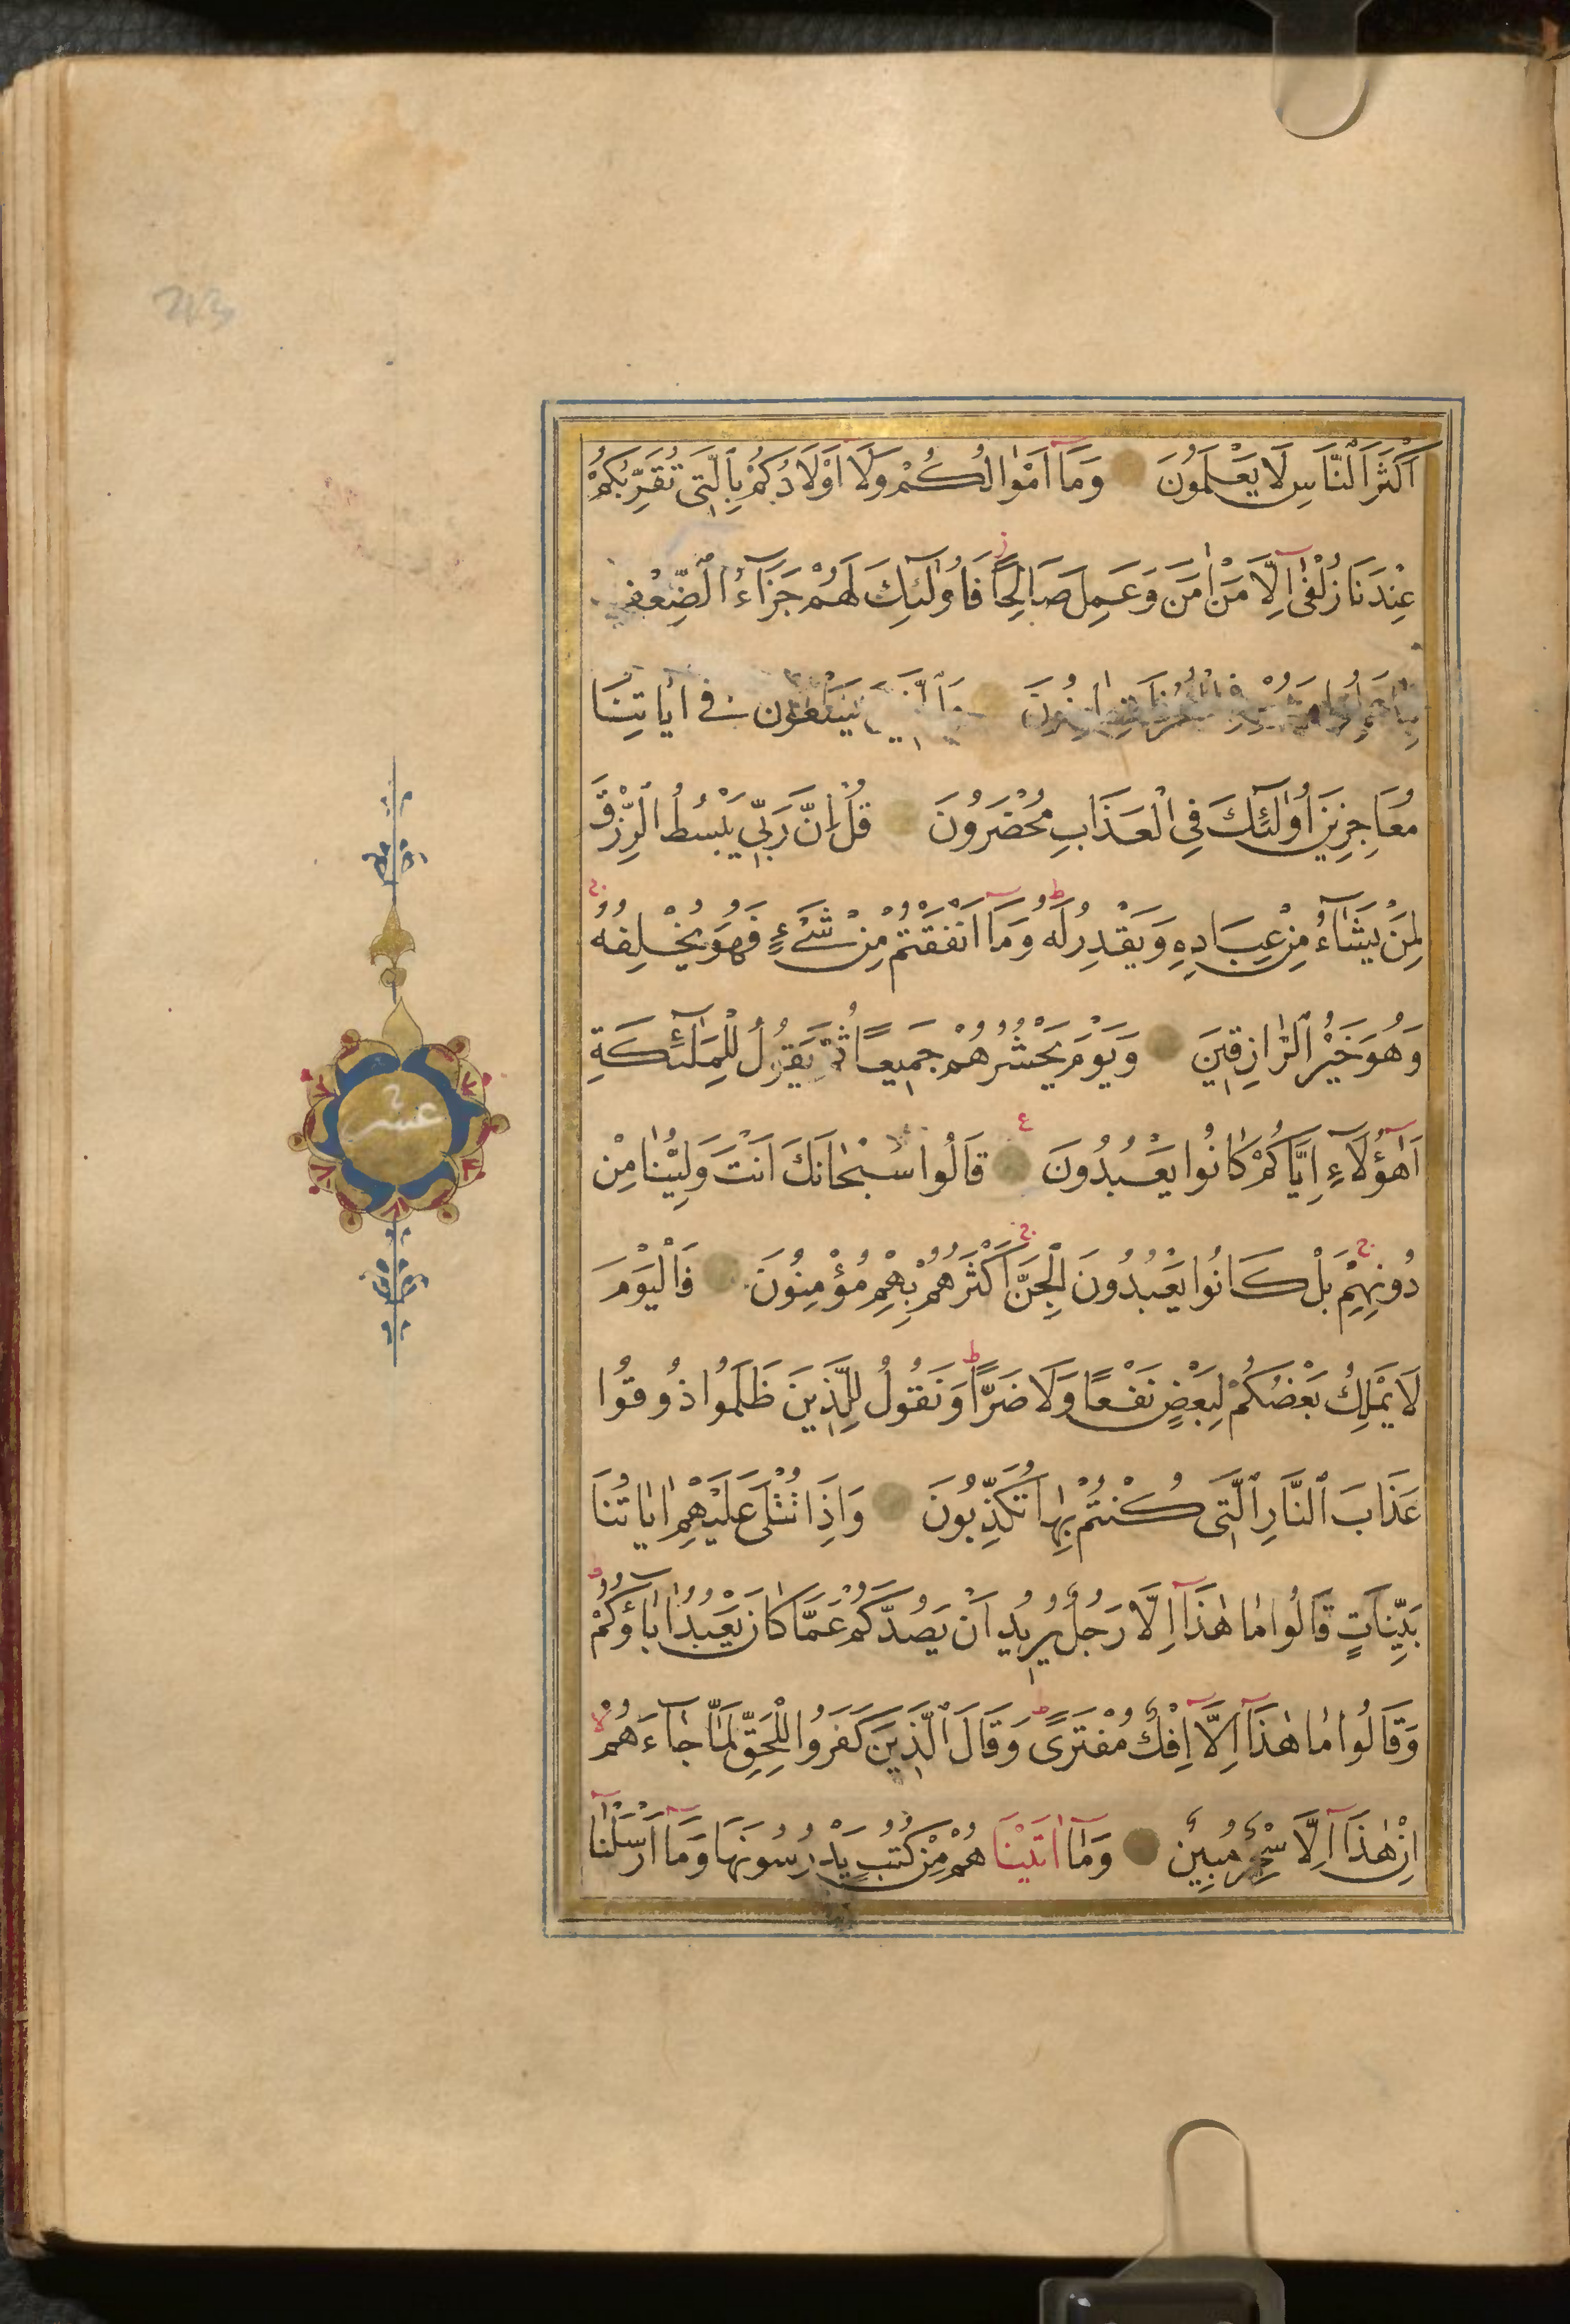 اَكْثَرَ النَّاسِ لَا يَعْلَمُونَ وَمَآ اَمْوٰالُكُمْ وَلَآ اَوْلَادُكُمْ بِالَّتِى تُقَرِّبُكُمْ
عِنْدَنَا زُلْفٰىٓ اِلَّا مَنْ اٰمَنَ وَعَمِلَ صَالِحًا فَاُولٰٓئِكَ لَهُمْ جَزَآءُ الضِّعْفِ
يَسْعَوْنَ فِى اٰيَاتِنَا
مُعَاجِزِينَ اُولٰٓئِكَ فِى الْعَذَابِ مُحْضَرُونَ قُلْ اِنَّ رَبِّى يَبْسُطُ الرِّزْقَ
لِمَنْ يَشَآءُ مِنْ عِبَادِهِ وَيَقْدِرُ لَهُ وَمَآ اَنْفَقْتُمْ مِنْ شَىْءٍ فَهُوَ يُخْلِفُهُ
وَهُوَ خَيْرُ الرَّازِقِينَ وَيَوْمَ يَحْشُرُهُمْ جَمِيعًا ثُمَّ يَقُولُ لِلْمَلٰٓئِكَةِ
اَهٰٓؤُلَآءِ اِيَّاكُمْ كَانُوا يَعْبُدُونَ قَالُوا سُبْحٰانَكَ اَنْتَ وَلِيُّنٰا مِنْ
دُونِهِمْ بَلْ كَانُوا يَعْبُدُونَ الْجِنَّ اَكْثَرُهُمْ بِهِمْ مُؤْمِنُونَ فَالْيَوْمَ
لَا يَمْلِكُ بَعْضُكُمْ لِبَعْضٍ نَفْعًا وَلَا ضَرًّا وَنَقُولُ لِلَّذِينَ ظَلَمُوا ذُوقُوا
عَذَابَ النَّارِ الَّتِى كُنْتُمْ بِهٰا تُكَذِّبُونَ وَاِذَا تُتْلٰى عَلَيْهِمْ اٰيَاتُنَا
بَيِّنَاتٍ قَالُوا مٰا هٰذَآ اِلَّا رَجُلٌ يُرِيدُ اَنْ يَصُدَّكُمْ عَمَّا كَانَ يَعْبُدُ اٰبَآؤُكُمْ
وَقَالُوا مٰا هٰذَآ اِلَّآ اِفْكٌ مُفْتَرًى وَقَالَ الَّذِينَ كَفَرُوا لِلْحَقِّ لَمَّا جٰآءَهُمْ
اِنْ هٰذَآ اِلَّا سِحْرٌ مُبِينٌ وَمَآ اٰتَيْنَاهُمْ مِنْ كُتُبٍ يَدْرُسُونَهَا وَمَآ اَرْسَلْنَآ
عشر